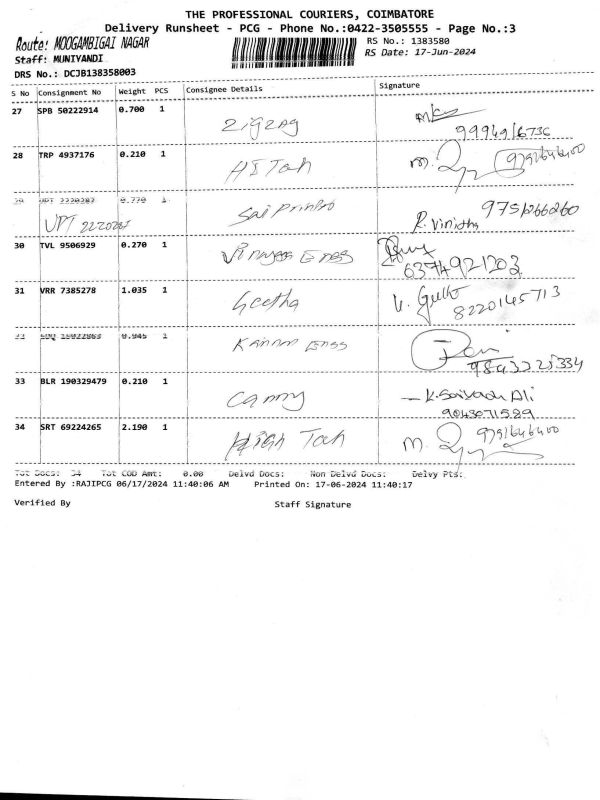 THE PROFESSIONAL COURIERS, COIMBATORE
Delivery Runsheet - PCG - Phone No.:0422-3505555 - Page No.:3
Route: MOOGAMBIGAI NAGAR
RS No.: 1383580
Staff: MUNIYANDI
RS Date: 17-Jun-2024
DRS No.: DCJB138358003
S No Consignment No Weight PCS Consignee Details Signature
27 SPB 50222914 0.700 1 Zigzag
28 TRP 4937176 0.210 1 HI Tah M.
29 UPT 2220287 0.770 1 Sai
UPT 2220287 R. Vinitha
30 TVL 9506929 0.270 1
6374921203
31 VRR 7385278 1.035 1 Geetha
8220145713
1 Kannan Engg
9843225334
33 BLR 190329479 0.210 1
9043071589
34 SRT 69224265 2.190 1 High Tah M.
Tot Docs: 34 Tot COD Amt: 0.00 Delvd Docs: Non Delvd Docs: Delvy Pts:
Entered By :RAJIPCG 06/17/2024 11:40:06 AM Printed On: 17-06-2024 11:40:17
Verified By Staff Signature